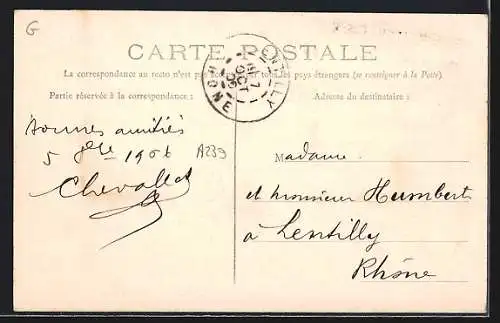 G
CARTE POSTALE
La correspondance au recto n'est pas acceptée par tous les pays étrangers (se renseigner à la Poste).
Partie réservée à la correspondance :
Adresse du destinataire :
LENTILLY
7
OCT
06
RHONE
bonnes amitiés
5 1906
A239
Chevallet
Madame
et monsieur Humbert
à Lentilly
Rhône